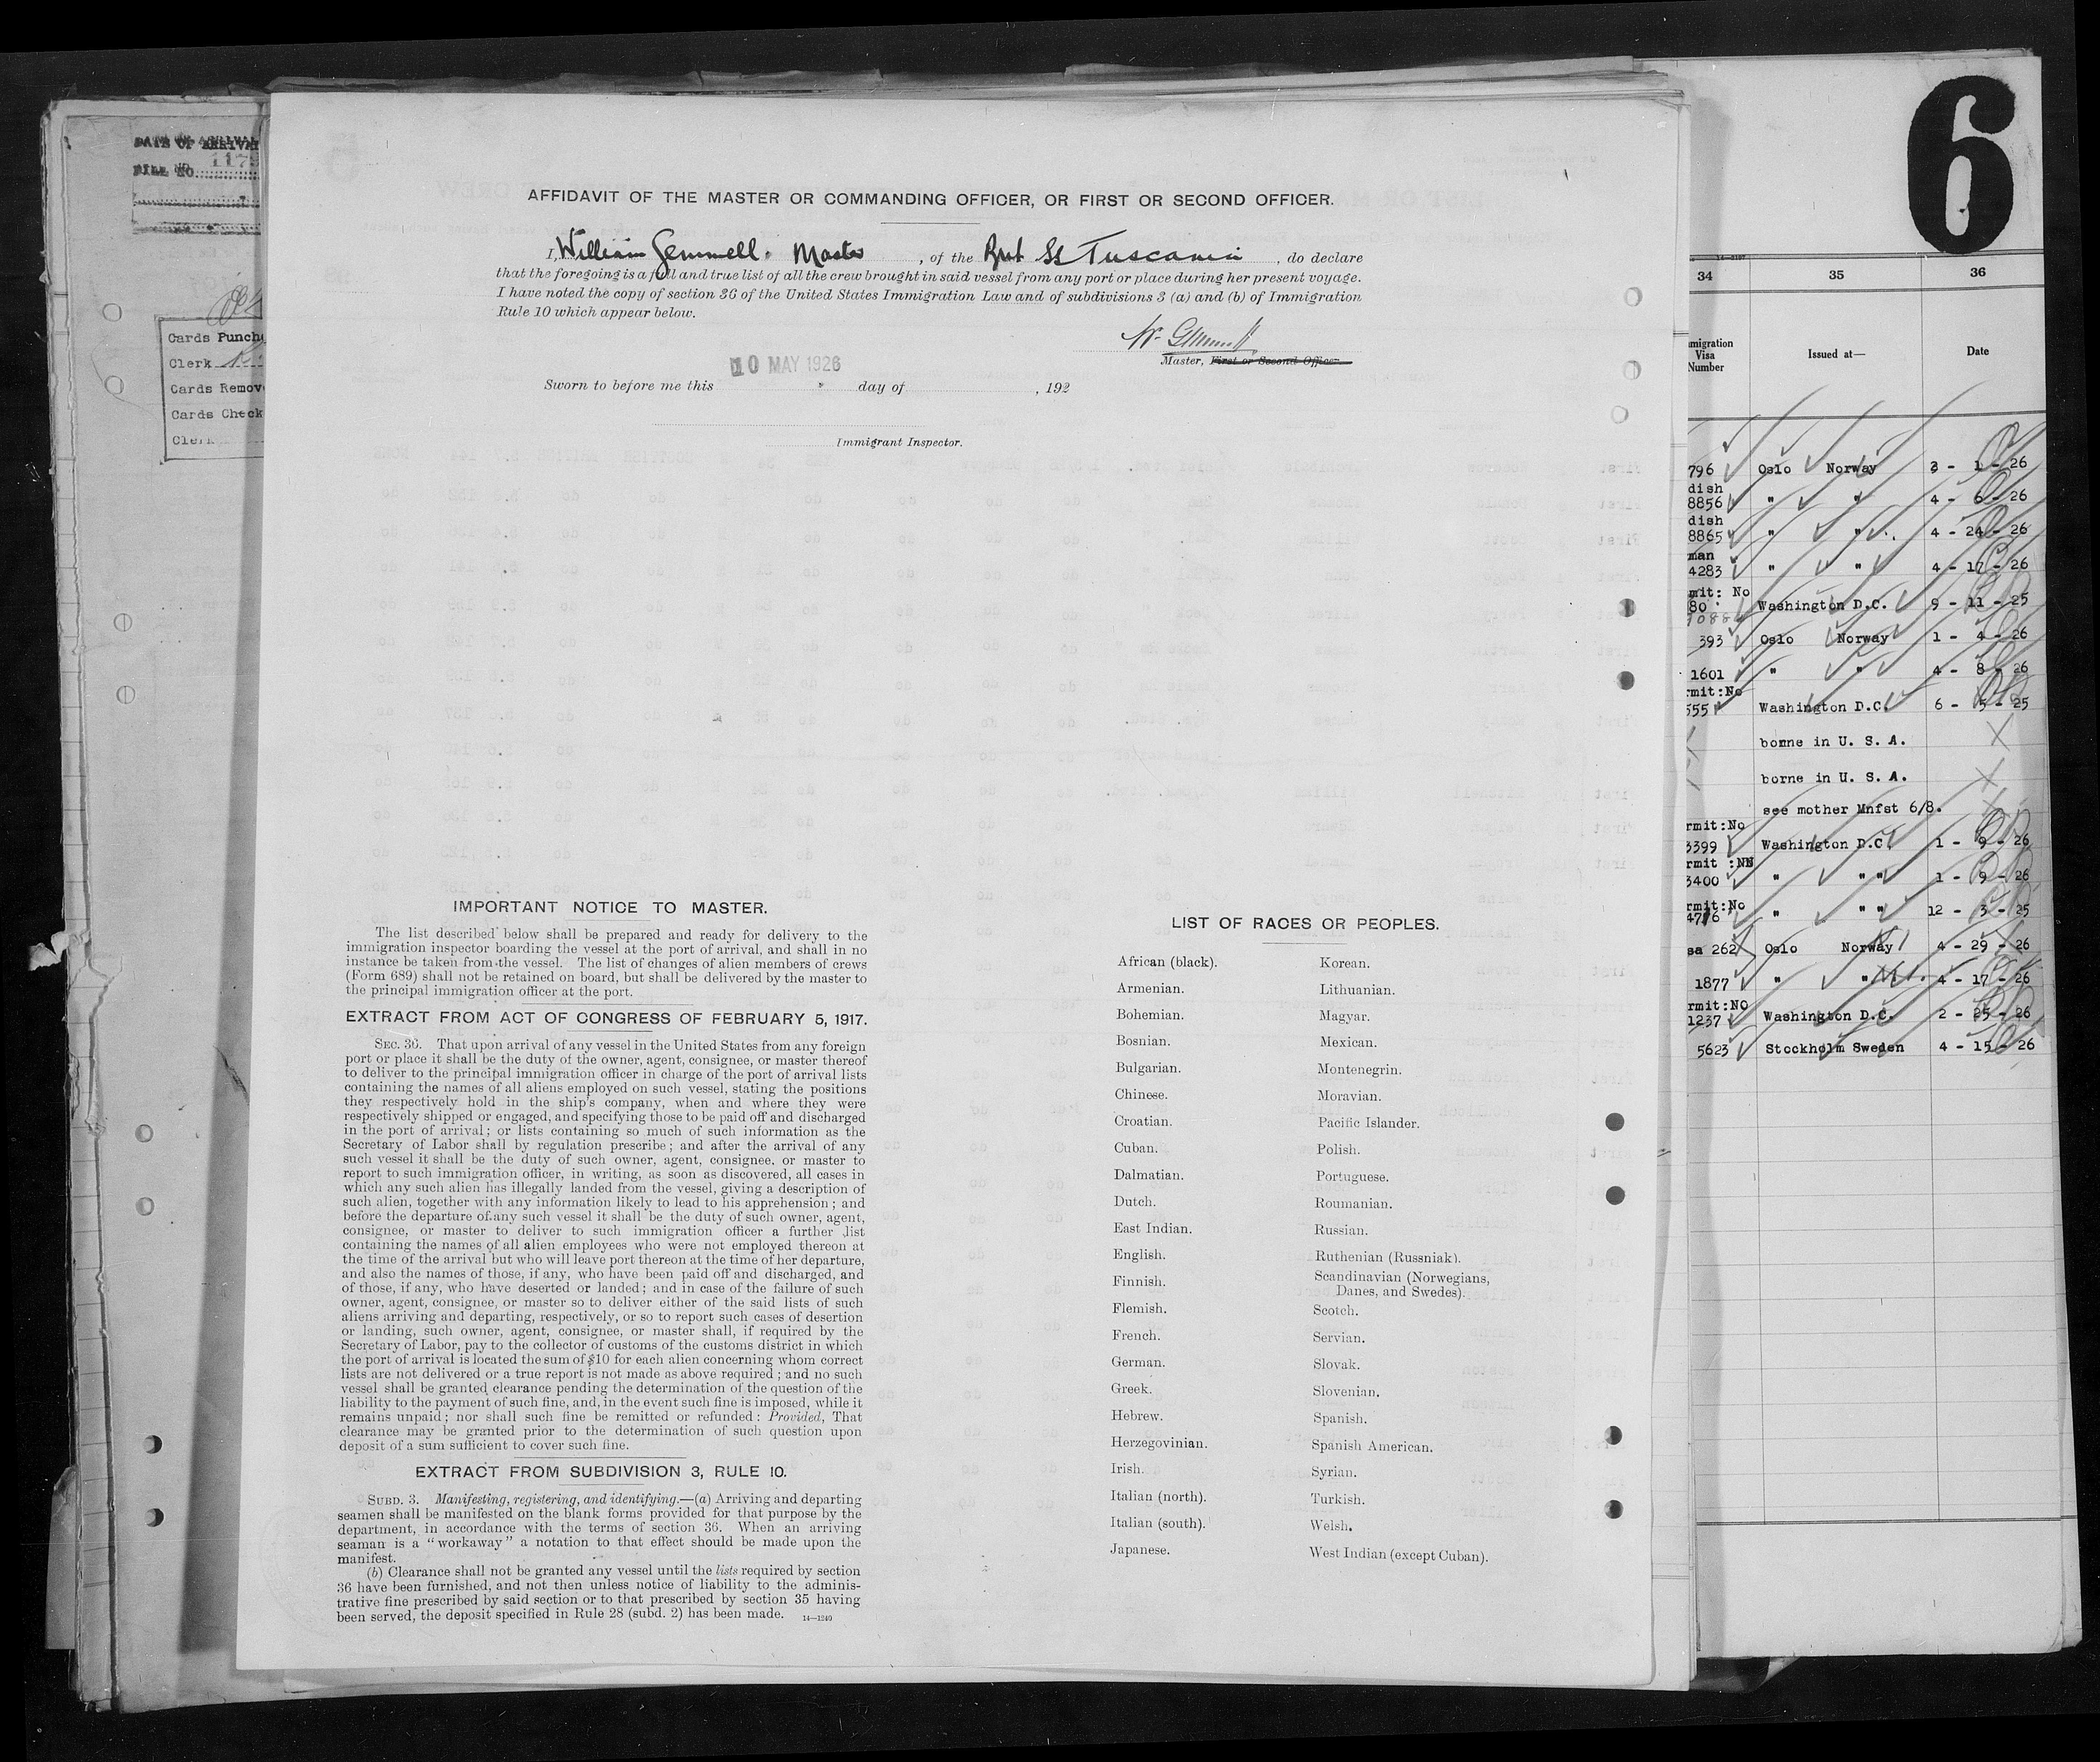 DATE OF ARRIVAL
FILE NO. 1179
Cards Punch
Clerk
Cards Remov
Cards Check
Clerk
AFFIDAVIT OF THE MASTER OR COMMANDING OFFICER, OR FIRST OR SECOND OFFICER.
I, William Gemmell. Master, of the Brit SS Tuscania, do declare
that the foregoing is a full and true list of all the crew brought in said vessel from any port or place during her present voyage.
I have noted the copy of section 36 of the United States Immigration Law and of subdivisions 3 (a) and (b) of Immigration
Rule 10 which appear below.
W. Gemmell
Master, First or Second Officer.
10 MAY 1926
Sworn to before me this day of , 192
Immigrant Inspector.
IMPORTANT NOTICE TO MASTER.
The list described below shall be prepared and ready for delivery to the
immigration inspector boarding the vessel at the port of arrival, and shall in no
instance be taken from the vessel. The list of changes of alien members of crews
(Form 689) shall not be retained on board, but shall be delivered by the master to
the principal immigration officer at the port.
EXTRACT FROM ACT OF CONGRESS OF FEBRUARY 5, 1917.
SEC. 36. That upon arrival of any vessel in the United States from any foreign
port or place it shall be the duty of the owner, agent, consignee, or master thereof
to deliver to the principal immigration officer in charge of the port of arrival lists
containing the names of all aliens employed on such vessel, stating the positions
they respectively hold in the ship's company, when and where they were
respectively shipped or engaged, and specifying those to be paid off and discharged
in the port of arrival; or lists containing so much of such information as the
Secretary of Labor shall by regulation prescribe; and after the arrival of any
such vessel it shall be the duty of such owner, agent, consignee, or master to
report to such immigration officer, in writing, as soon as discovered, all cases in
which any such alien has illegally landed from the vessel, giving a description of
such alien, together with any information likely to lead to his apprehension; and
before the departure of any such vessel it shall be the duty of such owner, agent,
consignee, or master to deliver to such immigration officer a further list
containing the names of all alien employees who were not employed thereon at
the time of the arrival but who will leave port thereon at the time of her departure,
and also the names of those, if any, who have been paid off and discharged, and
of those, if any, who have deserted or landed; and in case of the failure of such
owner, agent, consignee, or master so to deliver either of the said lists of such
aliens arriving and departing, respectively, or so to report such cases of desertion
or landing, such owner, agent, consignee, or master shall, if required by the
Secretary of Labor, pay to the collector of customs of the customs district in which
the port of arrival is located the sum of $10 for each alien concerning whom correct
lists are not delivered or a true report is not made as above required; and no such
vessel shall be granted clearance pending the determination of the question of the
liability to the payment of such fine, and, in the event such fine is imposed, while it
remains unpaid; nor shall such fine be remitted or refunded: Provided, That
clearance may be granted prior to the determination of such question upon
deposit of a sum sufficient to cover such fine.
EXTRACT FROM SUBDIVISION 3, RULE 10.
SUBD. 3. Manifesting, registering, and identifying.—(a) Arriving and departing
seamen shall be manifested on the blank forms provided for that purpose by the
department, in accordance with the terms of section 36. When an arriving
seaman is a "workaway" a notation to that effect should be made upon the
manifest.
(b) Clearance shall not be granted any vessel until the lists required by section
36 have been furnished, and not then unless notice of liability to the adminis-
trative fine prescribed by said section or to that prescribed by section 35 having
been served, the deposit specified in Rule 28 (subd. 2) has been made. 14—1240
LIST OF RACES OR PEOPLES.
African (black).
Armenian.
Bohemian.
Bosnian.
Bulgarian.
Chinese.
Croatian.
Cuban.
Dalmatian.
Dutch.
East Indian.
English.
Finnish.
Flemish.
French.
German.
Greek.
Hebrew.
Herzegovinian.
Irish.
Italian (north).
Italian (south).
Japanese.
Korean.
Lithuanian.
Magyar.
Mexican.
Montenegrin.
Moravian.
Pacific Islander.
Polish.
Portuguese.
Roumanian.
Russian.
Ruthenian (Russniak).
Scandinavian (Norwegians,
Danes, and Swedes).
Scotch.
Servian.
Slovak.
Slovenian.
Spanish.
Spanish American.
Syrian.
Turkish.
Welsh.
West Indian (except Cuban).
6
34 35 36
migration
Visa
Number
Issued at—
Date
796 Oslo Norway 3 - 1 - 26
dish
8856 " " 4 - 6 - 26
dish
8865 " " 4 - 24 - 26
man
4283 " " 4 - 17 - 26
mit: No
80 Washington D.C. 9 - 11 - 25
393 Oslo Norway 1 - 4 - 26
1601 " " 4 - 8 - 26
rmit:No
555 Washington D.C. 6 - 5 - 25
borne in U. S. A.
borne in U. S. A.
see mother Mnfst 6/8.
rmit:No
3399 Washington D.C. 1 - 9 - 26
rmit :NN
3400 " " " 1 - 9 - 26
rmit:No
4716 " " " 12 - 3 - 25
sa 262 Oslo Norway 4 - 29 - 26
1877 " " 4 - 17 - 26
rmit:NO
1237 Washington D.C. 2 - 25 - 26
5623 Stockholm Sweden 4 - 15 - 26